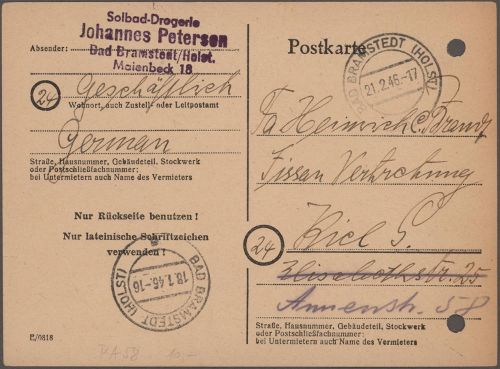 Solbad-Drogerie
Johannes Petersen
Bad Bramstedt/Holst.
Maienbeck 18
Absender:
24 Geschäftlich
Wohnort, auch Zustell- oder Leitpostamt
German
Straße, Hausnummer, Gebäudeteil, Stockwerk
oder Postschließfachnummer;
bei Untermietern auch Name des Vermieters
Nur Rückseite benutzen!
Nur lateinische Schriftzeichen
verwenden!
BAD BRAMSTEDT (HOLST)
18.1.46.-16
E/0818
Postkarte
BAD BRAMSTEDT (HOLST)
21.2.46.-17
Fa Heinrich C. Brandt
Fissan Vertretung
24 Kiel
Elisabethstr. 25
Annenstr. 58
Straße, Hausnummer, Gebäudeteil, Stockwerk
oder Postschließfachnummer;
bei Untermietern auch Name des Vermieters
10,-